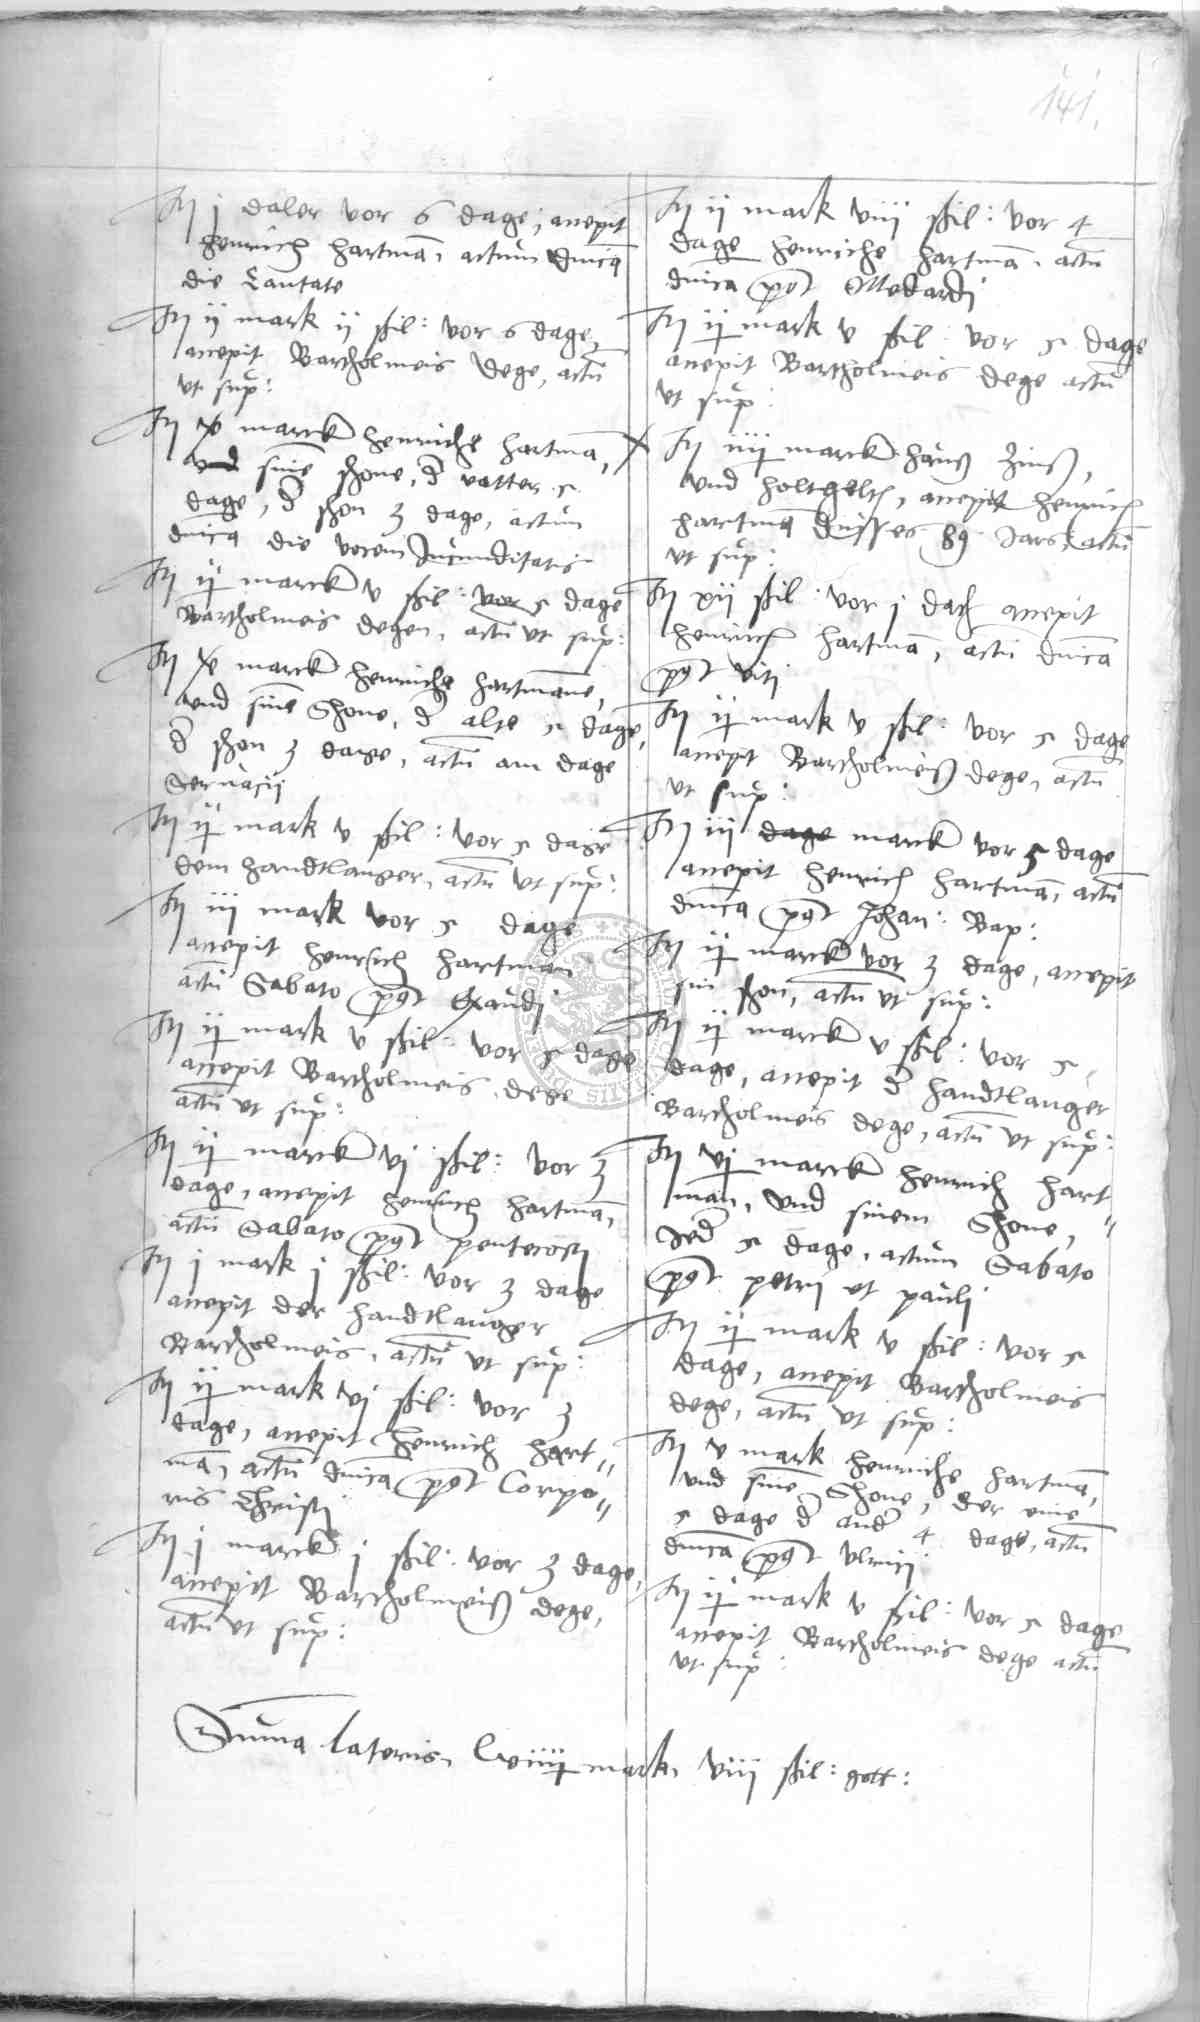 141.
Itm j daler vor 6 dage, accepit
Henrich Hartmā, actum dnica
die Cantate
Itm ij mark ij ßil: vor 6 dage,
accepit Bartholmeis Dege, actū
ut sup:
Itm marck Henriche Hartmā,
und sine shone, d vatter 5
dage, d shon 3 dage, actum
dnica die vocem Jucunditatis
Itm ij marck v ßil: vor 5 dage
Bartholmeis degen, actū ut sup:
Itm marck Henriche Hartmane,
und sine Shone, d alte 5 dage,
d shon 3 dage, actū am dage
Servacij
Itm ij mark v ßil: vor 5 dage
dem handtlanger, actū ut sup:
Itm iij mark vor 5 dage
accepit Henrich Hartman
actū Sabato post Exaudi
Itm ij mark v ßil: vor 5 dage
accepit Bartholmeis dege
actū ut sup:
Itm ij marck vj ßil: vor 3
dage, accepit Henrich Hartmā,
actū Sabato post pentecost
Itm j mark j ßil: vor 3 dage
accepit der handtlanger
Bartholmeis, actū ut sup:
Itm ij mark vj ßil: vor 3
dage, accepit Henrich Hart"
mā, actū dnica post Corpo"
ris Christi
Itm j marck j ßil: vor 3 dage,
accepit Bartholmeiß dege,
actū ut sup:
Itm ij mark viij ßil: vor 4
dage Henriche Hartmā, actū
dnica post Medardi
Itm ij mark v ßil: vor 5 dage
accepit Bartholmeis dege actū
ut sup:
Itm iiij marck hauß Zinß,
und holtgelth, accepit Henrich
Hartmā disses 89 Jars, actū
ut sup:
Itm xij ßil: vor j dach accepit
Henrich Hartmā, actū dnica
post Viti
Itm ij mark v ßil: vor 5 dage
accepit Bartholmeiß dege, actū
ut sup:
Itm iij dage marck vor 5 dage
accepit Henrich Hartmā, actū
dnica post Johan: Bap:
Itm ij marck vor 3 dage, accepit
sin shon, actū ut sup:
Itm ij marck v ßil: vor 5
dage, accepit d handtlanger
Bartholmeis dege, actū ut sup:
Itm vj marck Henrich Hart"
man, und sinem Shone,
Jed 5 dage, actum Sabato
post petri et pauli
Itm ij mark v ßil: vor 5
dage, accepit Bartholmeis
dege, actū ut sup:
Itm v mark Henriche Hartmā,
und sine Shone, der eine
5 dage d and 4 dage, actū
dnica post Ulrici
Itm ij mark v ßil: vor 5 dage
accepit Bartholmeis dege actū
ut sup:
Suma lateris, mark, viij ßil: gott: